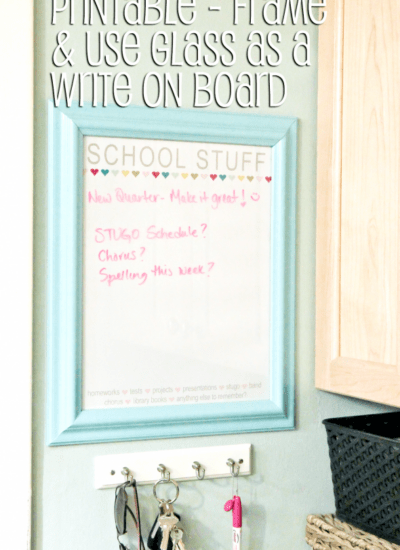 printable - frame
& use glass as a
write on board
SCHOOL STUFF
New Quarter - Make it great!
STUGO Schedule?
Chorus?
Spelling this week?
homework ♥ tests ♥ projects ♥ presentations ♥ stugo ♥ band
chorus ♥ library books ♥ anything else to remember?
b